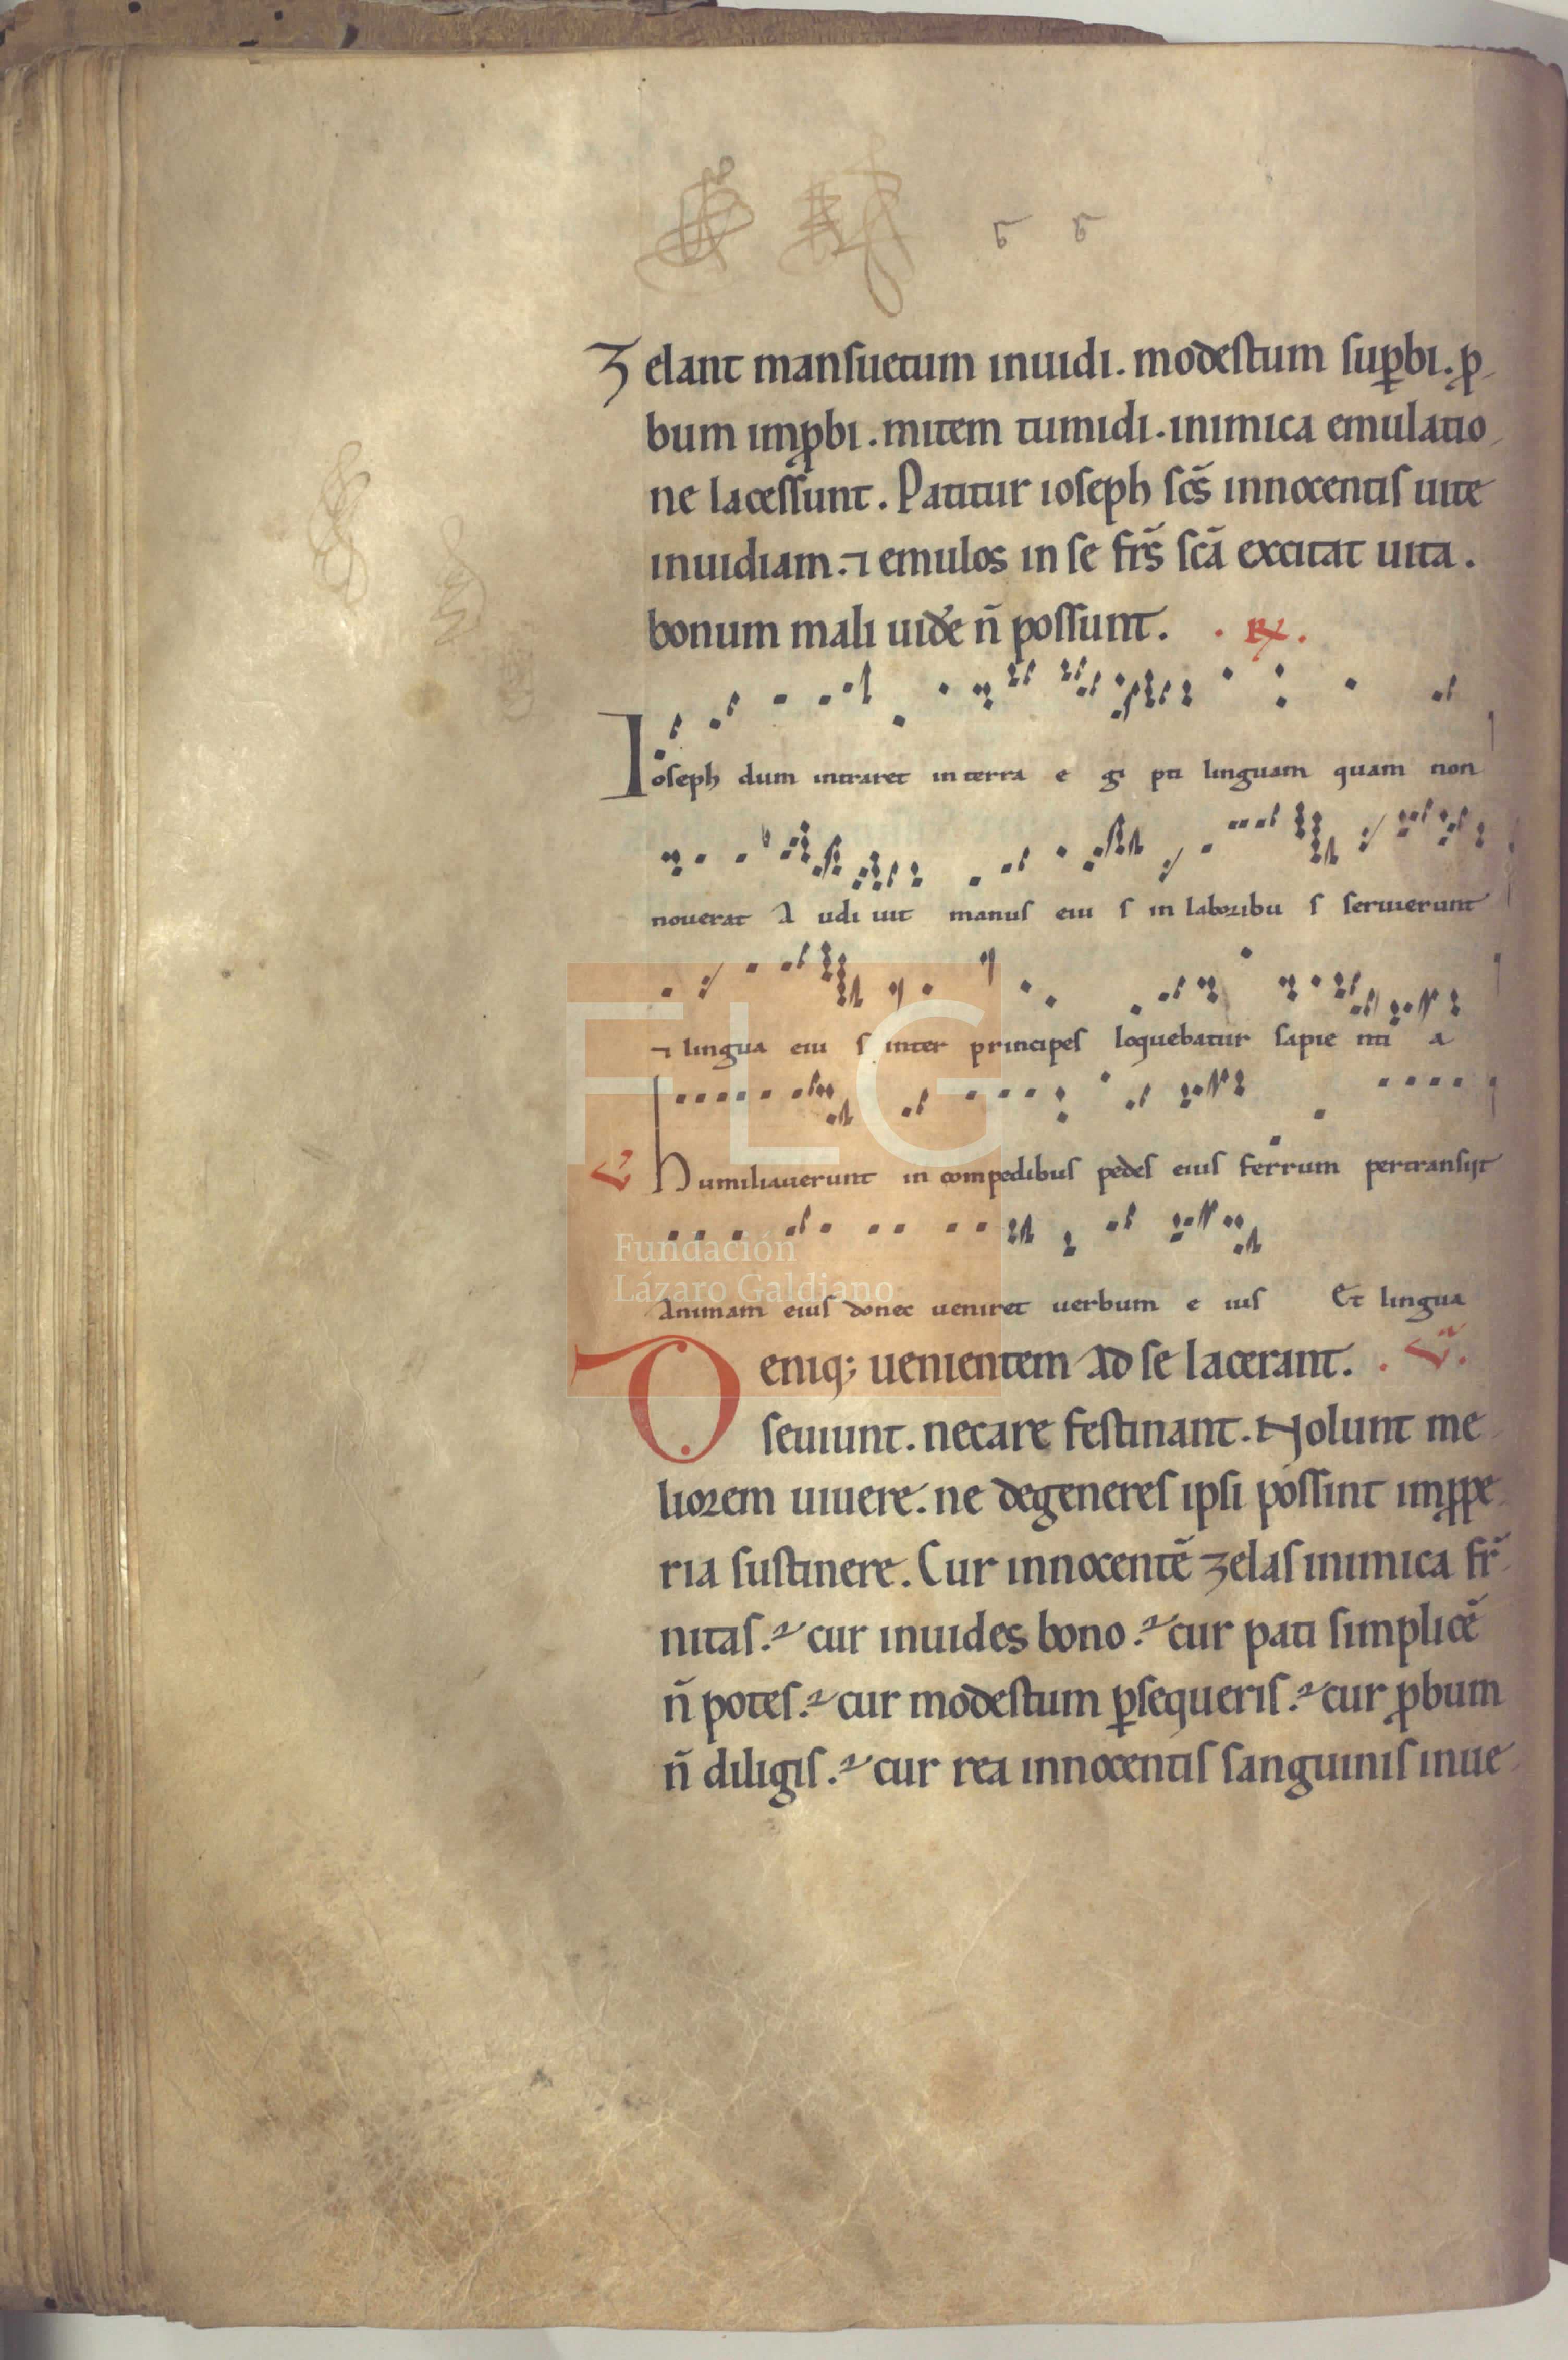 Ꝣelant mansuetum inuidi. modestum suꝑbi. ꝓ
bum imꝓbi. mitem tumidi. inimica emulatio
ne lacessunt. Patitur ioseph sc̄s innocentis uite
inuidiam. ⁊ emulos in se fr̄s sc̄a excitat uita.
bonum mali uid'e n̄ possunt. . ℟.
Ioseph dum intraret in terra e gi pti linguam quam non
nouerat A udi uit manus eiu s in laboribu s seruierunt
⁊ lingua eiu s inter principes loquebatur sapie nti a
℣ humiliauerunt in compedibus pedes eius ferrum pertransijt
Animam eius donec ueniret uerbum e ius Et lingua
Deniq; uenientem ad se lacerant. . ℣.
seuiunt. necare festinant. Nolunt me
liorem uiuere. ne degeneres ipsi possint imꝓpe
ria sustinere. Cur innocentē zelas inimica fr̄
nitas? cur inuides bono? cur pati simplicē
n̄ potes? cur modestum ꝑsequeris? cur ꝓbum
n̄ diligis? cur rea innocentis sanguinis inue
FLG
Fundación
Lázaro Galdiano